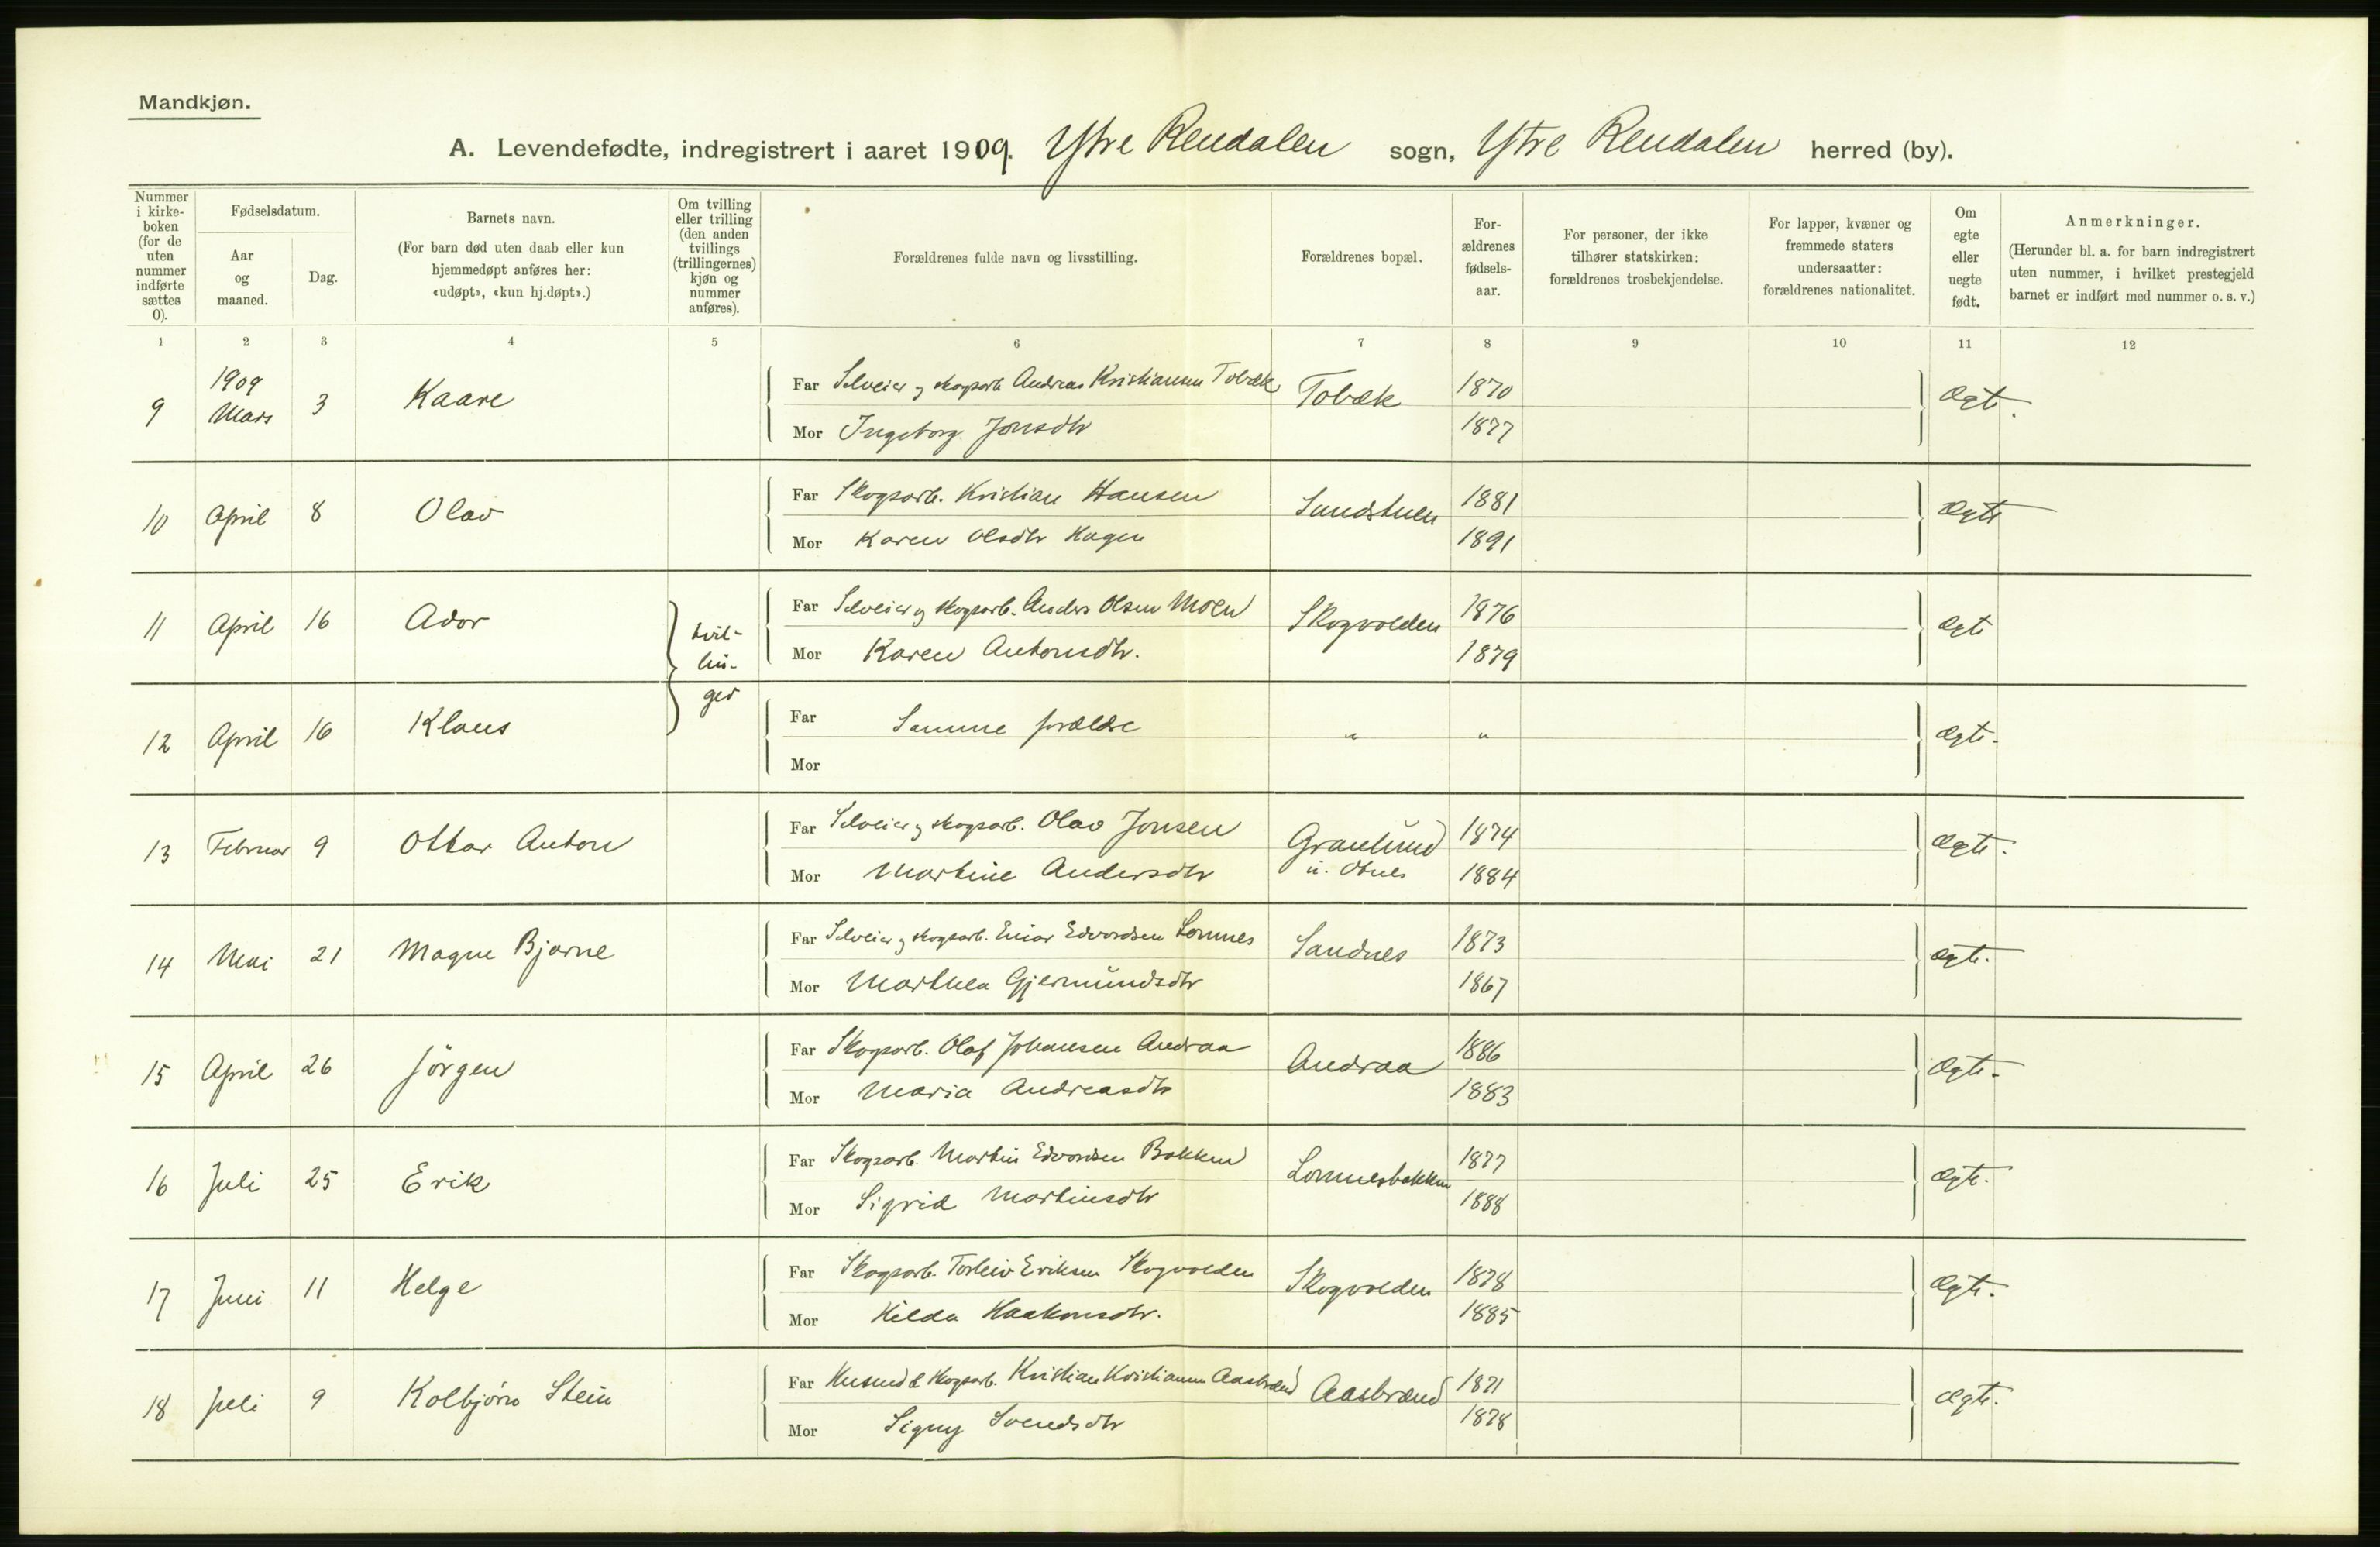 Mandkjøn.
A. Levendefødte, indregistrert i aaret 1909. Ytre Rendalen sogn, Ytre Rendalen herred (by).
Nummer i kirke-boken (for de uten nummer indførte sættes 0).
Fødselsdatum.
Aar og maaned.
Dag.
Barnets navn.
(For barn død uten daab eller kun hjemmedøpt anføres her: «udøpt», «kun hj.døpt».)
Om tvilling eller trilling (den anden tvillings (trillingernes) kjøn og nummer anføres).
Forældrenes fulde navn og livsstilling.
Forældrenes bopæl.
For-ældrenes fødsels-aar.
For personer, der ikke tilhører statskirken: forældrenes trosbekjendelse.
For lapper, kvæner og fremmede staters undersaatter: forældrenes nationalitet.
Om egte eller uegte født.
Anmerkninger.
(Herunder bl. a. for barn indregistrert uten nummer, i hvilket prestegjeld barnet er indført med nummer o. s. v.)
1 2 3 4 5 6 7 8 9 10 11 12
9 1909 Mars 3 Kaare Far Selveier og skogsarb. Andreas Kristiansen Tobæk Tobæk 1870 ægte.
Mor Ingeborg Jonsdtr 1877
10 April 8 Olav Far Skogsarb. Kristian Hansen Sundstuen 1881 ægte
Mor Karen Olsdtr Hagen 1891
11 April 16 Ador tvil-lin-ger Far Selveier og skogsarb. Anders Olsen Moen Skogvolden 1876 ægte
Mor Karen Antonsdtr. 1879
12 April 16 Klaus Far Samme forældre " " ægte.
Mor
13 Februar 9 Ottar Anton Far Selveier og skogsarb. Olav Jonsen Granlund 1874 ægte.
Mor Martine Andersdtr u. Otnes 1884
14 Mai 21 Magne Bjarne Far Selveier og skogsarb. Einar Edvardsen Lomnes Sandnes 1873 ægte.
Mor Marthea Gjermundsdtr 1867
15 April 26 Jörgen Far Skogsarb. Olaf Johansen Andraa Andraa 1886 ægte.
Mor Maria Andreasdtr 1883
16 Juli 25 Erik Far Skogsarb. Martin Edvardsen Bakken Lomnesbakken 1877 ægte.
Mor Sigrid Martinsdtr 1888
17 Juni 11 Helge Far Skogsarb. Torleiv Eriksen Skogvolden Skogvolden 1878 ægte.
Mor Hilda Haakonsdtr. 1885
18 Juli 9 Kolbjörn Stein Far Husmd & skogsarb. Kristian Kristiansen Aasbrænd Aasbrænd 1871 ægte.
Mor Signy Svendsdtr 1878